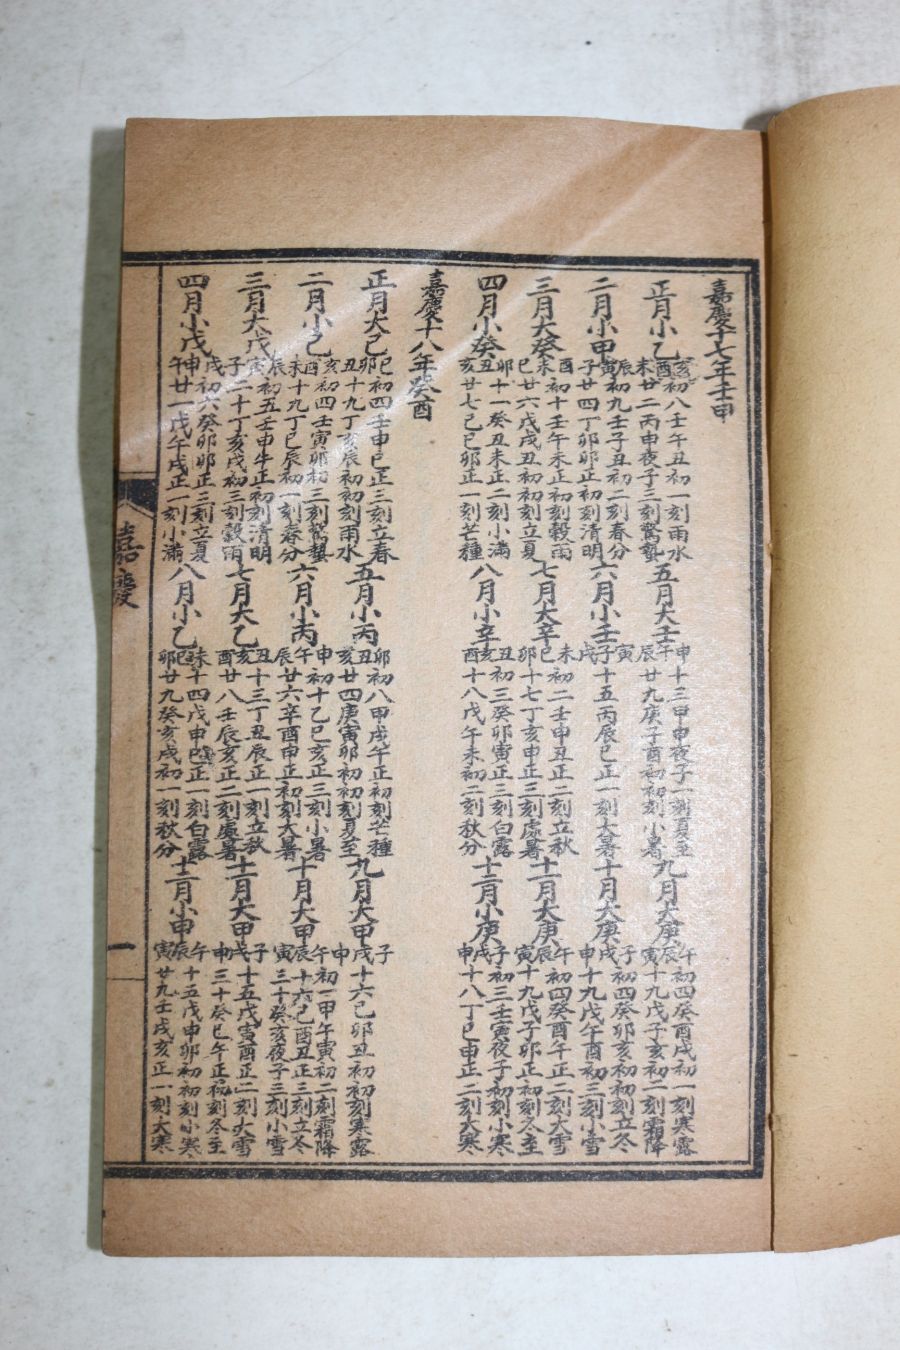 嘉慶十七年壬申
正月小乙
亥初八壬午丑初一刻雨水
酉未廿二丙申夜子三刻驚蟄
五月大壬
申十三甲申夜子一刻夏至
午辰廿九庚子酉初初刻小暑
九月大庚
午初四癸酉戌初一刻寒露
辰寅十九戊子亥初二刻霜降
二月小甲
辰初九壬子丑初二刻春分
寅子廿四丁卯卯正初刻清明
六月小壬
寅子戌十五丙辰巳正一刻大暑
十月大庚
子初四癸卯亥初初刻立冬
戌申十九戊午酉初三刻小雪
三月大癸
酉初十壬午未正初刻穀雨
未巳廿六戊戌丑初初刻立夏
七月大辛
未初二壬申丑正二刻立秋
巳卯十七丁亥申正三刻處暑
十一月大庚
午初四癸酉午正二刻大雪
辰寅十九戊子卯正初刻冬至
四月小癸
卯十一癸丑未正二刻小滿
丑亥廿七己巳卯正一刻芒種
八月小辛
丑初三癸卯寅正三刻白露
亥酉十八戊午未初二刻秋分
十二月小庚
子初三壬寅夜子初刻小寒
戌申十八丁巳申正二刻大寒
嘉慶十八年癸酉
正月大己
巳初四壬申巳正三刻立春
卯丑十九丁亥辰初初刻雨水
五月小丙
卯初八甲戌午正初刻芒種
丑亥廿四庚寅卯初初刻夏至
九月大甲
子戌申十六己卯丑初初刻寒露
二月小己
亥初四壬寅卯初三刻驚蟄
未十九丁巳辰初一刻春分
六月小丙
申初十乙巳亥正三刻小暑
午辰廿六辛酉申正初刻大暑
十月大甲
午初一甲午寅初二刻霜降
辰十六己酉丑正三刻立冬
寅三十癸亥夜子三刻小雪
三月大戊
辰初五壬申午正初刻清明
寅子二十丁亥戌初三刻穀雨
七月大乙
丑十三丁丑辰正一刻立秋
亥酉廿八壬辰亥正二刻處暑
十一月大甲
子戌十五戊寅酉正二刻大雪
申三十癸巳午正初刻冬至
四月小戊
戌初六癸卯卯正三刻立夏
申午廿一戊午戌正一刻小滿
八月小乙
未十四戊申巳正一刻白露
巳卯廿九癸亥戌初一刻秋分
十二月小申
午十五戊申卯初初刻小寒
辰寅廿九壬戌亥正一刻大寒
嘉慶
一